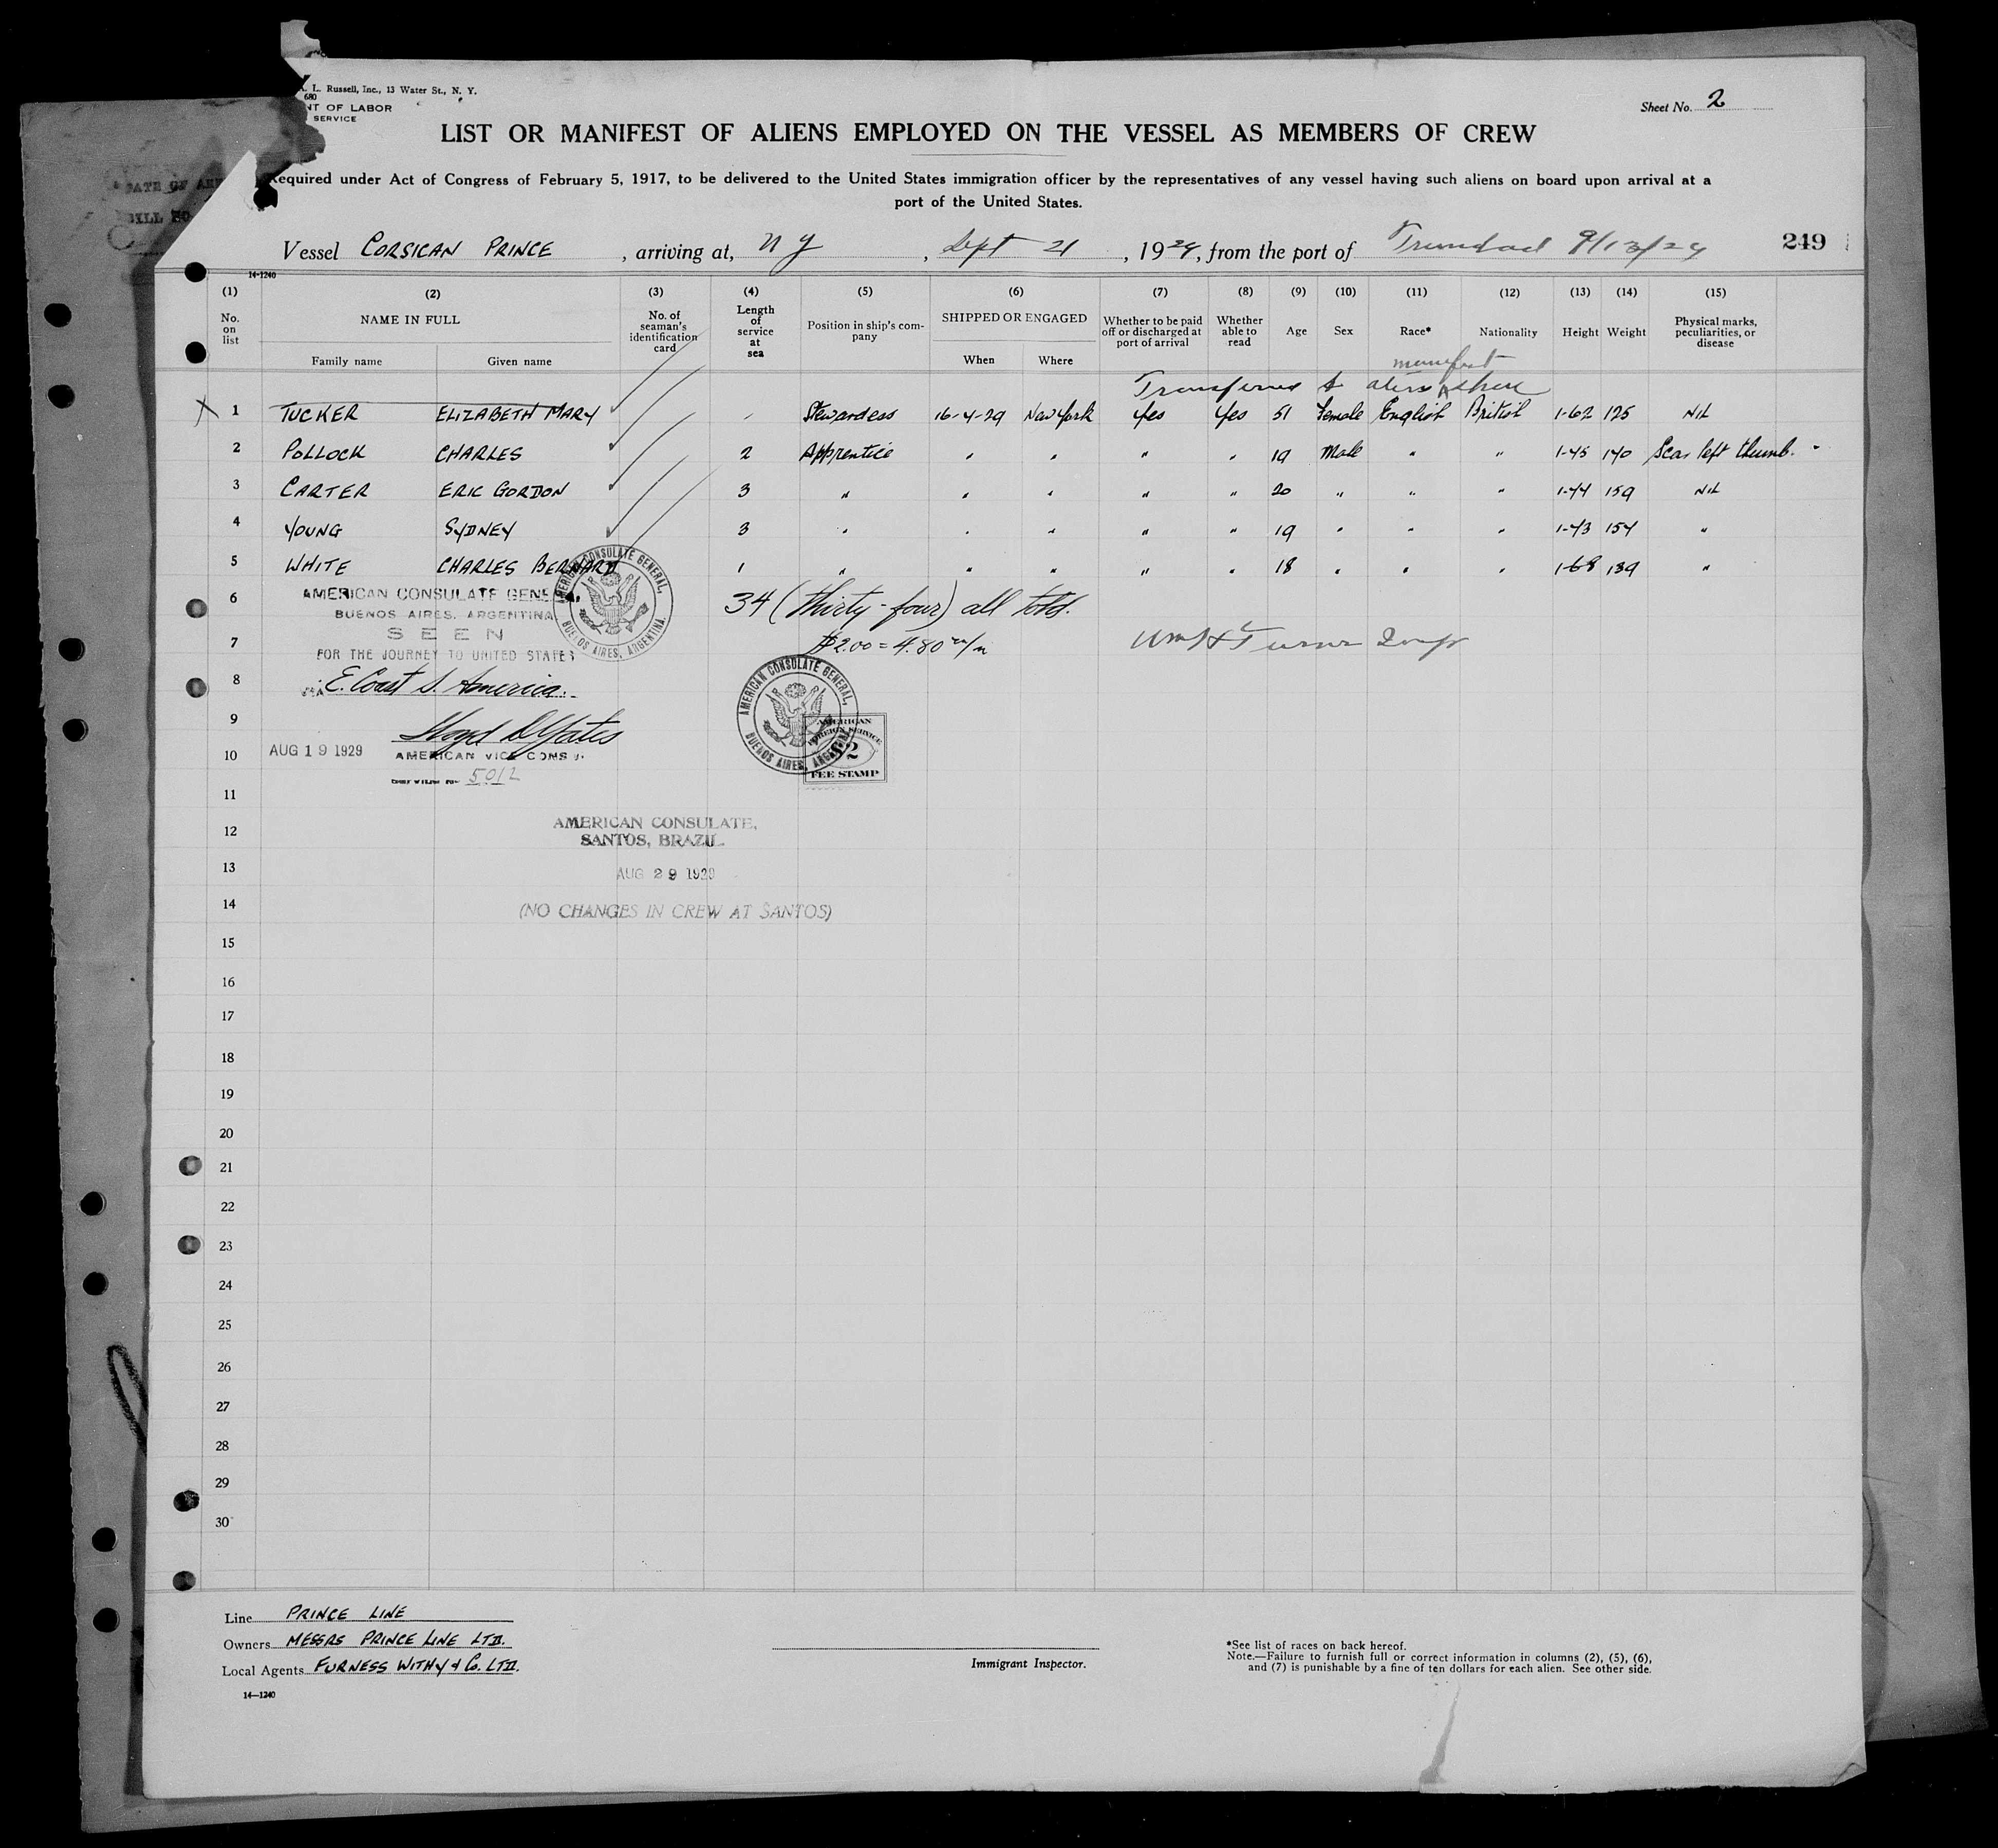 L. Russell, Inc., 13 Water St., N. Y.
680
NT OF LABOR
SERVICE
Sheet No. 2
LIST OR MANIFEST OF ALIENS EMPLOYED ON THE VESSEL AS MEMBERS OF CREW
Required under Act of Congress of February 5, 1917, to be delivered to the United States immigration officer by the representatives of any vessel having such aliens on board upon arrival at a
port of the United States.
Vessel CORSICAN PRINCE, arriving at, N Y, Sept 21, 1929, from the port of Trinidad 9/13/29 249
14-1240
(1) No. on list (2) NAME IN FULL Family name Given name (3) No. of seaman's identification card (4) Length of service at sea (5) Position in ship's company (6) SHIPPED OR ENGAGED When Where (7) Whether to be paid off or discharged at port of arrival (8) Whether able to read (9) Age (10) Sex (11) Race* (12) Nationality (13) Height (14) Weight (15) Physical marks, peculiarities, or disease
manifest
Transferred to alien
1 TUCKER ELIZABETH MARY Stewardess 16-4-29 New York Yes Yes 51 Female English British 1-62 125 NIL
2 POLLOCK CHARLES 2 Apprentice " " " " 19 Male " " 1-45 140 Scar left thumb.
3 CARTER ERIC GORDON 3 " " " " " 20 " " " 1-44 159 NIL
4 YOUNG SYDNEY 3 " " " " " 19 " " " 1-43 154 "
5 WHITE CHARLES BERNARD 1 " " " " " 18 " " " 1-68 139 "
6 34 (Thirty-four) all told.
AMERICAN CONSULATE GENERAL,
BUENOS AIRES, ARGENTINA
SEEN
FOR THE JOURNEY TO UNITED STATES
AMERICAN CONSULATE GENERAL, BUENOS AIRES, ARGENTINA.
7 $2.00 = 4.80 m/n
8 E. Coast S. America.
AMERICAN CONSULATE GENERAL, BUENOS AIRES, ARGENTINA.
AMERICAN FOREIGN SERVICE
2
FEE STAMP
9
10 AUG 19 1929 AMERICAN VICE CONSUL
5012
11
12 AMERICAN CONSULATE,
SANTOS, BRAZIL
13 AUG 29 1929
14 (NO CHANGES IN CREW AT SANTOS)
15
16
17
18
19
20
21
22
23
24
25
26
27
28
29
30
Line PRINCE LINE
Owners MESSRS PRINCE LINE LTD.
Local Agents FURNESS WITHY & Co. LTD.
14—1240
Immigrant Inspector.
*See list of races on back hereof.
Note.—Failure to furnish full or correct information in columns (2), (5), (6),
and (7) is punishable by a fine of ten dollars for each alien. See other side.